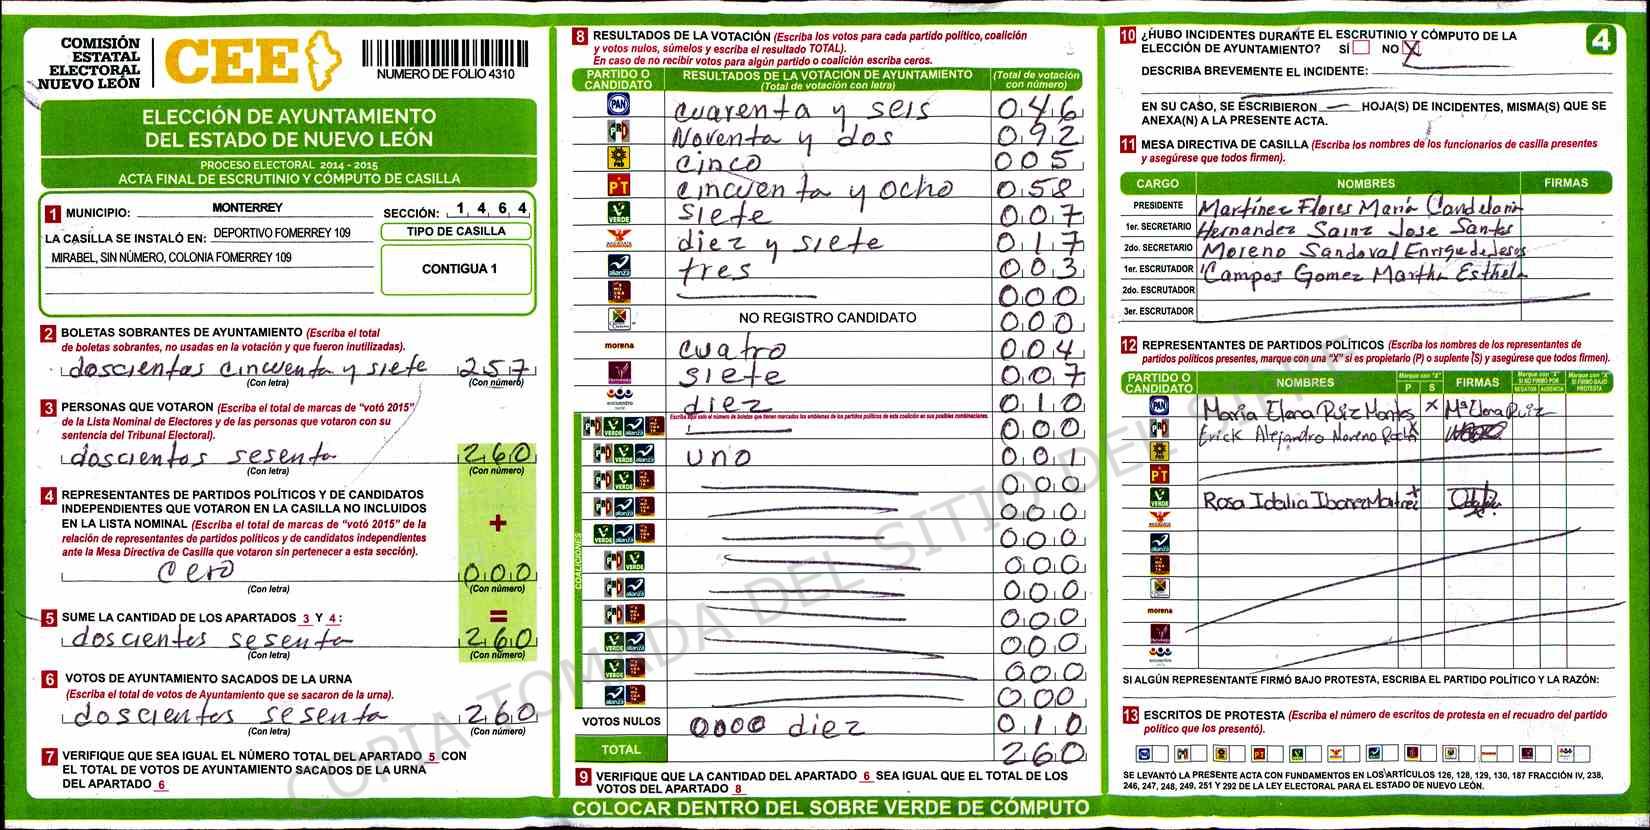 COMISIÓN
ESTATAL
ELECTORAL
NUEVO LEÓN
CEE
NUMERO DE FOLIO 4310
ELECCIÓN DE AYUNTAMIENTO
DEL ESTADO DE NUEVO LEÓN
PROCESO ELECTORAL 2014 - 2015
ACTA FINAL DE ESCRUTINIO Y CÓMPUTO DE CASILLA
1 MUNICIPIO: MONTERREY SECCIÓN: 1 4 6 4
LA CASILLA SE INSTALÓ EN: DEPORTIVO FOMERREY 109
MIRABEL, SIN NÚMERO, COLONIA FOMERREY 109
TIPO DE CASILLA
CONTIGUA 1
2 BOLETAS SOBRANTES DE AYUNTAMIENTO (Escriba el total
de boletas sobrantes, no usadas en la votación y que fueron inutilizadas).
doscientas cincuenta y siete 257
(Con letra) (Con número)
3 PERSONAS QUE VOTARON (Escriba el total de marcas de "votó 2015"
de la Lista Nominal de Electores y de las personas que votaron con su
sentencia del Tribunal Electoral).
doscientos sesenta 260
(Con letra) (Con número)
4 REPRESENTANTES DE PARTIDOS POLÍTICOS Y DE CANDIDATOS
INDEPENDIENTES QUE VOTARON EN LA CASILLA NO INCLUIDOS
EN LA LISTA NOMINAL (Escriba el total de marcas de "votó 2015" de la
relación de representantes de partidos políticos y de candidatos independientes
ante la Mesa Directiva de Casilla que votaron sin pertenecer a esta sección).
+
cero 000
(Con letra) (Con número)
=
5 SUME LA CANTIDAD DE LOS APARTADOS 3 Y 4:
doscientos sesenta 260
(Con letra) (Con número)
6 VOTOS DE AYUNTAMIENTO SACADOS DE LA URNA
(Escriba el total de votos de Ayuntamiento que se sacaron de la urna).
doscientos sesenta 260
(Con letra) (Con número)
7 VERIFIQUE QUE SEA IGUAL EL NÚMERO TOTAL DEL APARTADO 5 CON
EL TOTAL DE VOTOS DE AYUNTAMIENTO SACADOS DE LA URNA
DEL APARTADO 6
8 RESULTADOS DE LA VOTACIÓN (Escriba los votos para cada partido político, coalición
y votos nulos, súmelos y escriba el resultado TOTAL).
En caso de no recibir votos para algún partido o coalición escriba ceros.
PARTIDO O CANDIDATO RESULTADOS DE LA VOTACIÓN DE AYUNTAMIENTO (Total de votación con letra) (Total de votación con número)
PAN cuarenta y seis 046
PRD Noventa y dos 092
PRD cinco 005
PT cincuenta y ocho 058
VERDE siete 007
diez y siete 017
alianza tres 003
000
NO REGISTRO CANDIDATO 000
morena cuatro 004
siete 007
encuentro diez 010
Escriba aquí solo el número de boletas que tienen marcados los emblemas de los partidos políticos de esta coalición en sus posibles combinaciones.
COALICIONES
VERDE alianza 000
VERDE alianza uno 001
VERDE 000
alianza 000
VERDE alianza 000
VERDE 000
alianza 000
000
VERDE alianza 000
VERDE 000
alianza 000
VOTOS NULOS 0000 diez 010
TOTAL 260
9 VERIFIQUE QUE LA CANTIDAD DEL APARTADO 6 SEA IGUAL QUE EL TOTAL DE LOS
VOTOS DEL APARTADO 8
COLOCAR DENTRO DEL SOBRE VERDE DE CÓMPUTO
4
10 ¿HUBO INCIDENTES DURANTE EL ESCRUTINIO Y CÓMPUTO DE LA
ELECCIÓN DE AYUNTAMIENTO? SÍ NO X
DESCRIBA BREVEMENTE EL INCIDENTE:
EN SU CASO, SE ESCRIBIERON — HOJA(S) DE INCIDENTES, MISMA(S) QUE SE
ANEXA(N) A LA PRESENTE ACTA.
11 MESA DIRECTIVA DE CASILLA (Escriba los nombres de los funcionarios de casilla presentes
y asegúrese que todos firmen).
CARGO NOMBRES FIRMAS
PRESIDENTE Martínez Flores María Candelaria
1er. SECRETARIO Hernandez Sainz Jose Santos
2do. SECRETARIO Moreno Sandoval Enrique de Jesos
1er. ESCRUTADOR Campos Gomez Martha Esthela
2do. ESCRUTADOR
3er. ESCRUTADOR
12 REPRESENTANTES DE PARTIDOS POLÍTICOS (Escriba los nombres de los representantes de
partidos políticos presentes, marque con una "X" si es propietario (P) o suplente (S) y asegúrese que todos firmen).
PARTIDO O CANDIDATO NOMBRES Marque con "X" P S FIRMAS Marque con "X" SI NO FIRMÓ POR NEGATIVA AUSENCIA Marque con "X" SI FIRMÓ BAJO PROTESTA
PAN María Elena Ruiz Montes X Ma Elena Ruiz
Erick Alejandro Moreno Rocha X
PRD
PT
VERDE Rosa Idalia X
alianza
morena
encuentro
SI ALGÚN REPRESENTANTE FIRMÓ BAJO PROTESTA, ESCRIBA EL PARTIDO POLÍTICO Y LA RAZÓN:
13 ESCRITOS DE PROTESTA (Escriba el número de escritos de protesta en el recuadro del partido
político que los presentó).
SE LEVANTÓ LA PRESENTE ACTA CON FUNDAMENTOS EN LOS ARTÍCULOS 126, 128, 129, 130, 187 FRACCIÓN IV, 238,
246, 247, 248, 249, 251 Y 292 DE LA LEY ELECTORAL PARA EL ESTADO DE NUEVO LEÓN.
COPIA TOMADA DEL SITIO DEL SIPRE